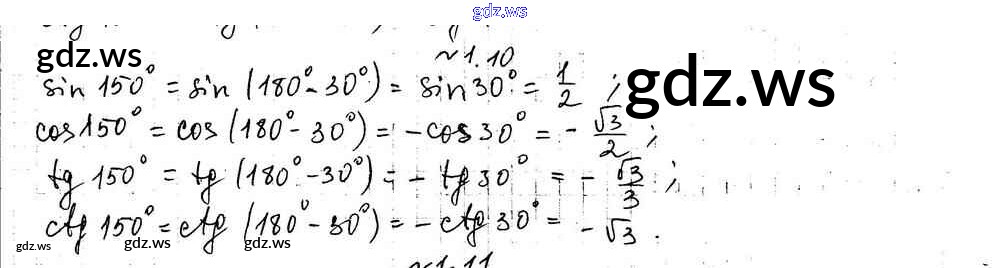 gdz.ws
~1.10
gdz.ws
sin 150° = sin (180° - 30°) = sin 30° = 1/2 ;
gdz.ws
cos 150° = cos (180° - 30°) = - cos 30° = - √3/2 ;
gdz.ws
tg 150° = tg (180° - 30°) = - tg 30° = - √3/3 ;
ctg 150° = ctg (180° - 30°) = - ctg 30° = - √3 .
gdz.ws
gdz.ws
~1.11